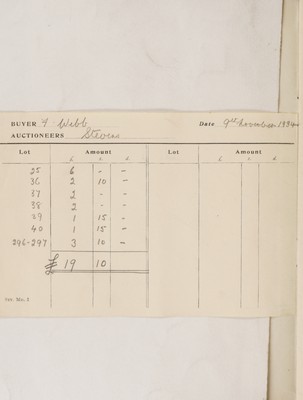 BUYER Webb Date 9th November 1934
AUCTIONEERS Stevens
Lot Amount Lot Amount
£ s. d. £ s. d.
35 6 - -
36 2 10 -
37 2 - -
38 2 - -
39 1 15 -
40 1 15 -
296-297 3 10 -
£ 19 10